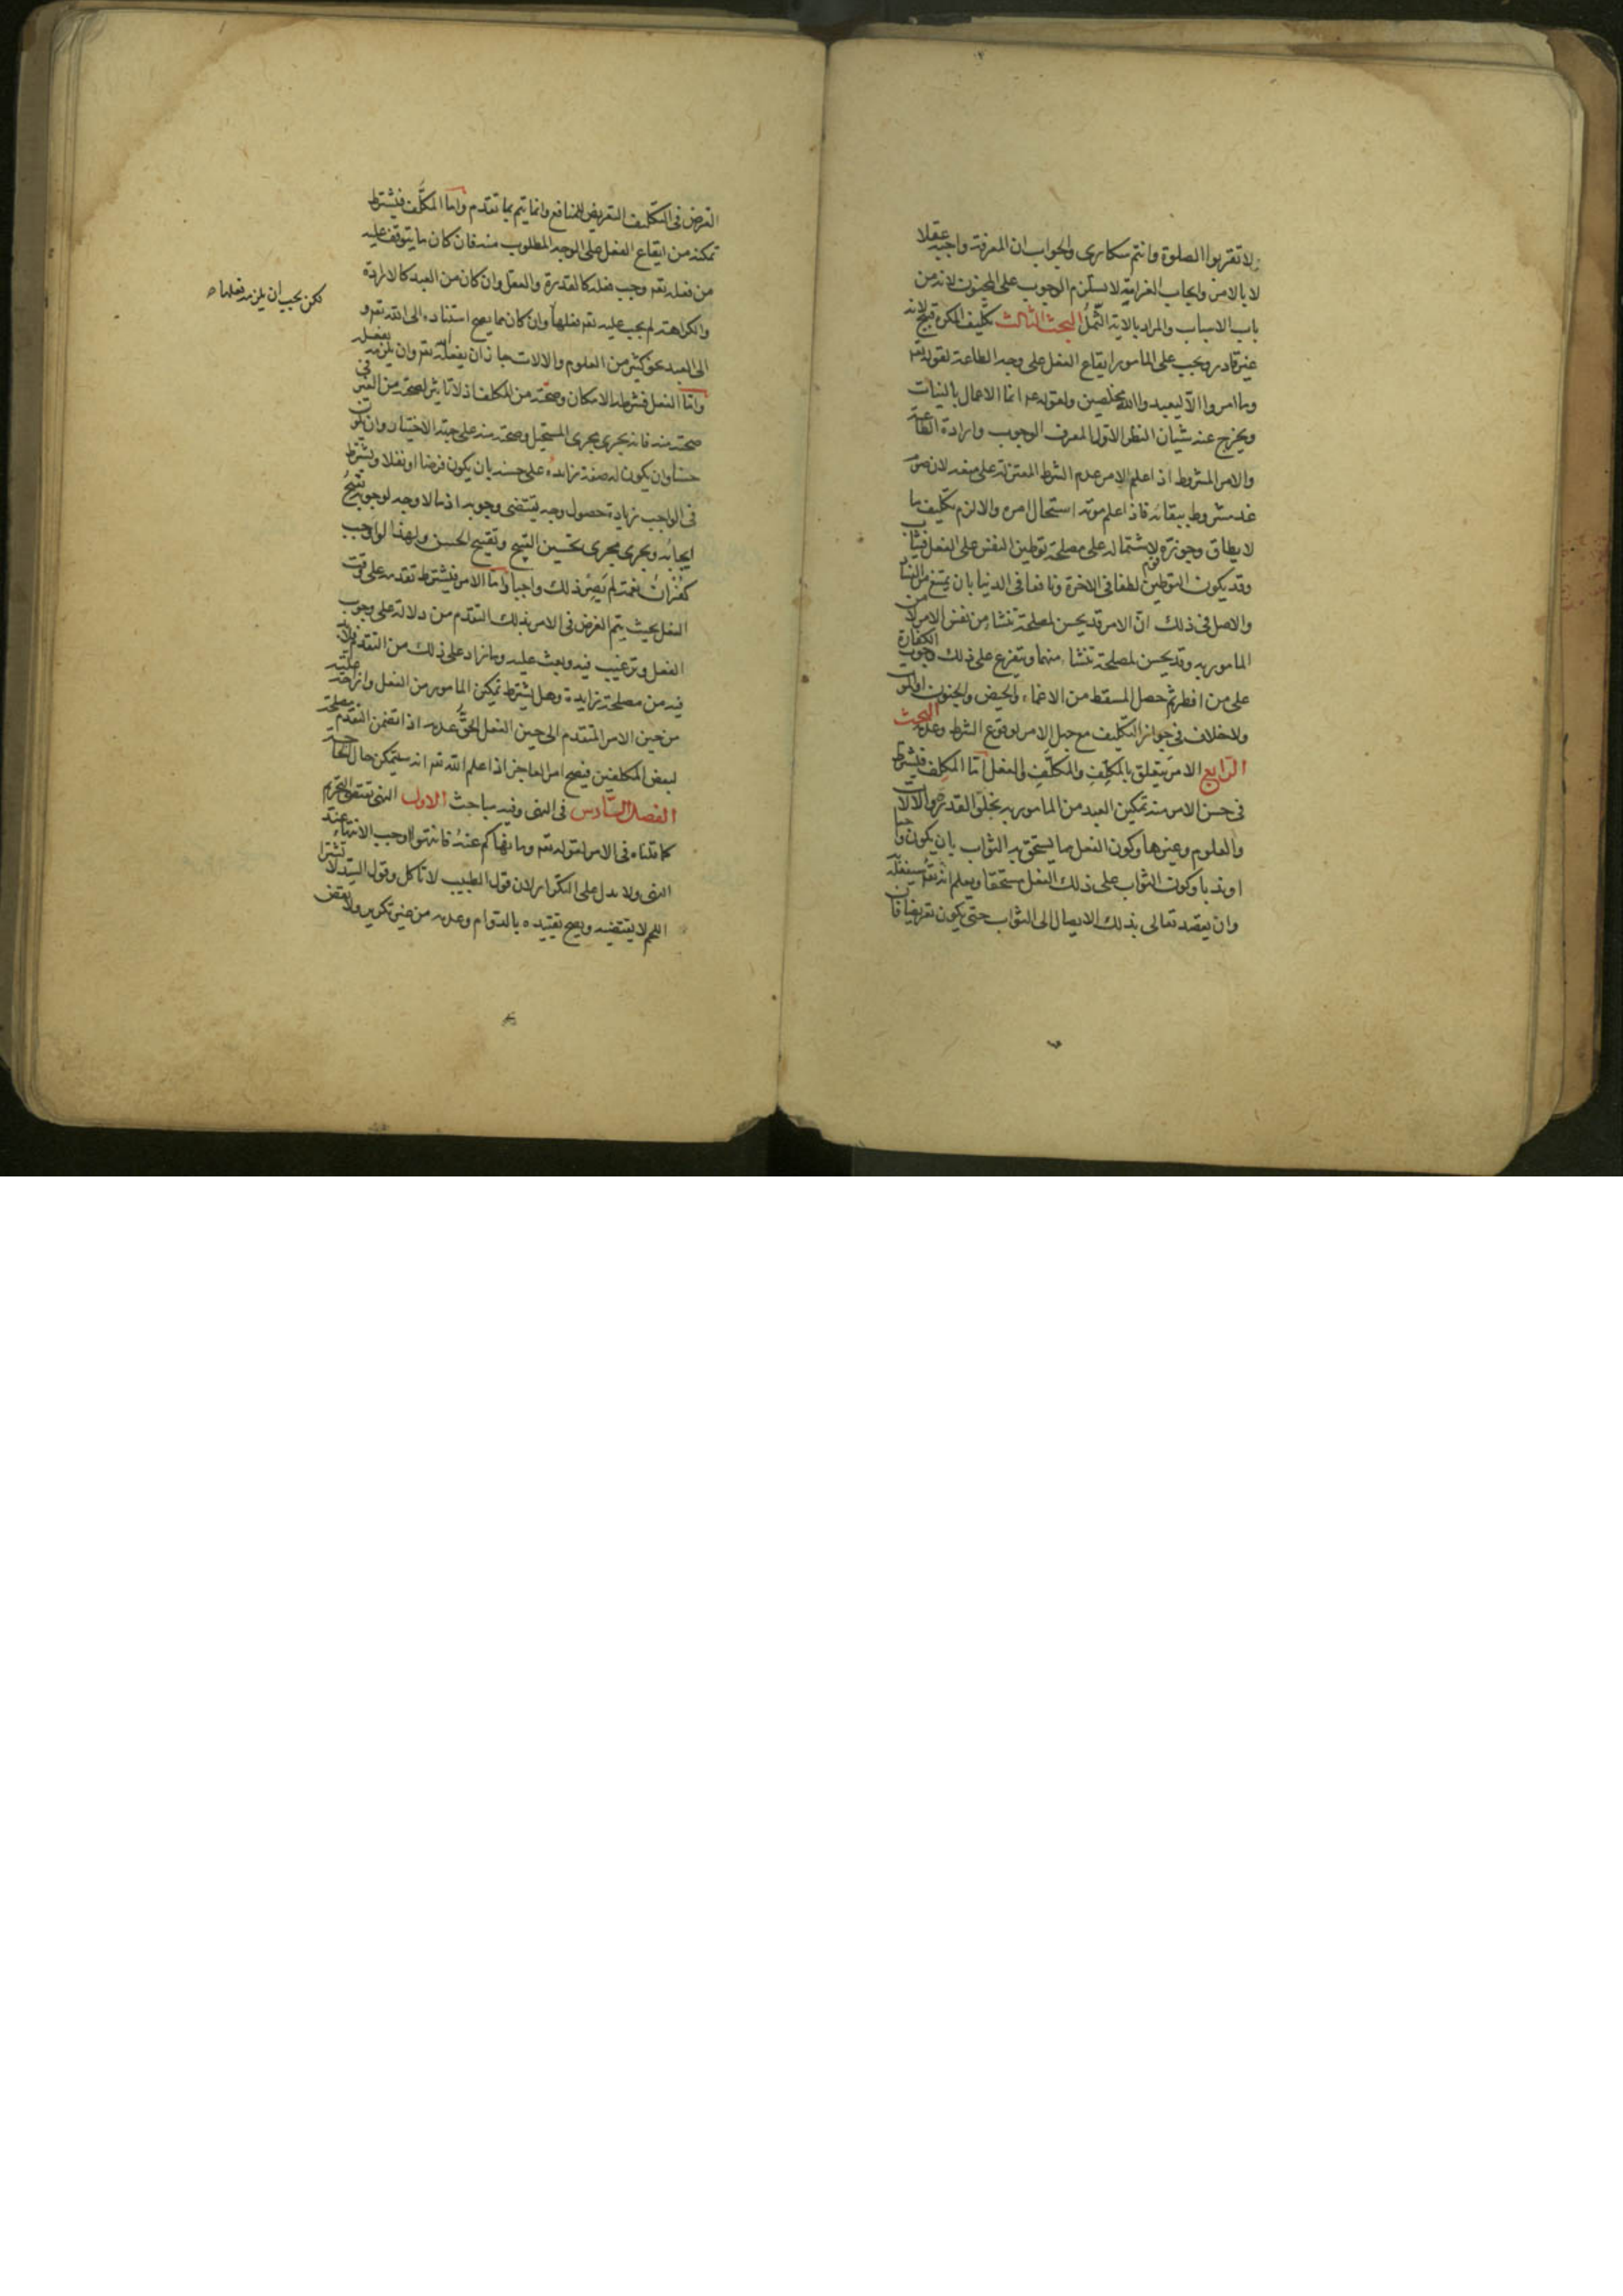 ولا تقربوا الصلوة وانتم سكارى والجواب ان المعرفة واجبة عقلا
لا بالامر وايجاب الغرامة لا يستلزم الوجوب على المجنون لانه من
باب الاسباب والمراد بالاية الثمل البحث الثالث تكليف المكره قبيح لانه
غير قادر ويجب على المامور ايقاع الفعل على وجه الطاعة لقوله تعه
وما امروا الا ليعبدوا الله مخلصين ولقوله عه انما الاعمال بالنيات
ويخرج عنه شيان النظر الاول المعرف الوجوب وارادة الطاعة
والامر المشروط اذ اعلم الامر عدم الشرط المعتزلة على منعه لان صوم
غد مشروط ببقائه فاذا علم موته استحال امره والا لزم تكليف ما
لا يطاق وجوزه قوم لاشتماله على مصلحة توطين النفس على الفعل فيثاب
وقد يكون التوطين لطفا في الاخرة ونافعا في الدنيا بان يمتنع من الفساد
والاصل في ذلك ان الامر قد يحسن لمصلحة تنشا من نفس الامر لا من
المامور به وقد يحسن لمصلحة تنشا منهما ويتفرع على ذلك وجوب الكفارة
على من افطر ثم حصل المسقط من الاغماء والحيض والجنون او الموت
ولا خلاف في جواز التكليف مع جهل الامر لوقوع الشرط وعدمه البحث
الرابع الامر يتعلق بالمكلِّف والمكلَّف والفعل اما المكلِّف فيشترط
في حسن الامر منه تمكين العبد من المامور به بخلق القدرة والالات
والعلوم وغيرها وكون الفعل مما يستحق به الثواب بان يكون واجبا
او ندبا وكون الثواب على ذلك الفعل مستحقا ويعلم انه تعه سيفعله
وان يقصد تعالى بذلك الايصال الى الثواب حتى يكون تعريضا فان
الغرض في التكليف التعريض للمنافع وانما يتم بما تقدم واما المكلَّف فيشترط
تمكنه من ايقاع الفعل على الوجه المطلوب منه فان كان ما يتوقف عليه
من فعله تعه وجب فعله كالقدرة والعقل وان كان من العبد كالارادة
والكراهة لم يجب عليه تعه فعلها وان كان مما يصح استناده الى الله تعه و
لكن يجب ان يلزمه فعلها ه
الى العبد نحو كثير من العلوم والالات جاز ان يفعله الله تعه وان يلزمه بفعله
واما الفعل فشرطه الامكان وصحته من المكلف اذ لا تاثير لصحته من الغير في
صحته منه فانه يجرى مجرى المستحيل وصحته منه على جهة الاختيار وان يكون
حسنا وان يكون له صفة زايدة على حسنه بان يكون فرضا او نفلا ويشترط
في الواجب زيادة حصول وجه يقتضى وجوبه اذ ما لا وجه لوجوبه يقبح
ايجابه ويجرى مجرى تحسين القبيح وتقبيح الحسن ولهذا لو اوجب
كفران نعمته لم يصر ذلك واجبا واما الامر فيشترط تقدمه على وقت
الفعل بحيث يتم الغرض في الامر بذلك التقدم من دلالته على وجوب
الفعل وترغيب فيه وبعث عليه وما زاد على ذلك من التقدم فلا بد
فيه من مصلحة زايدة وهل يشترط تمكين المامور من الفعل وازاحة علته
من حين الامر المتقدم الى حين الفعل الحق عدمه اذا تضمن التقدم مصلحة
لبعض المكلفين فيصح امر العاجز اذا علم الله تعه انه سيتمكن حال الحاجة
الفصل السادس في النهى وفيه مباحث الاول النهى يقتضى التحريم
كما قلناه في الامر لقوله تعه وما نهاكم عنه فانتهوا اوجب الانتهاء عند
النهى ولا يدل على التكرار لان قول الطبيب لا تاكل وقول السيد لا تشترا
اللحم لا يقتضيه ويصح تقييده بالدوام وعدمه من غير تكرير ولا نقض